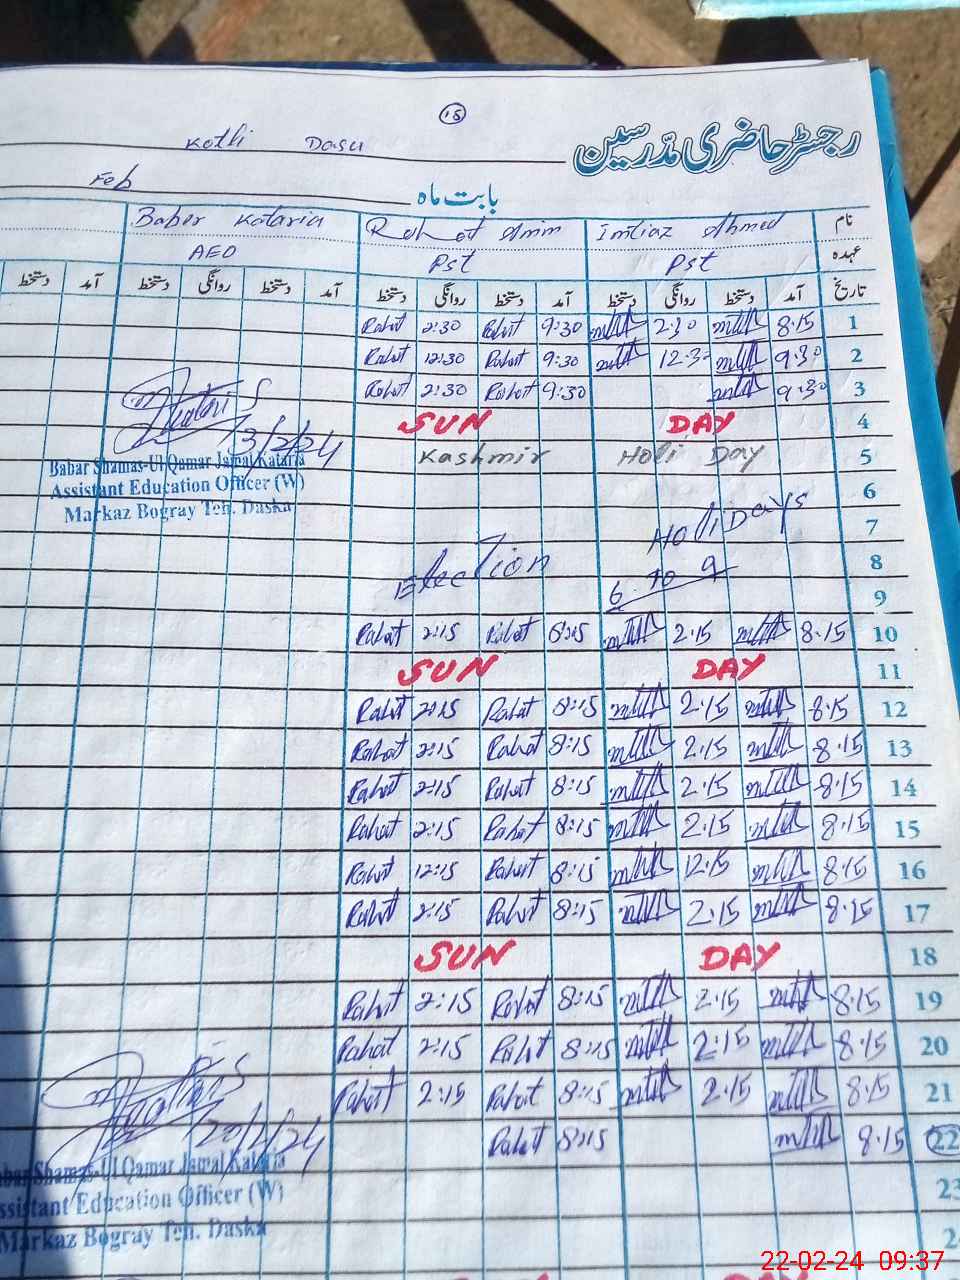 15
رجسٹر حاضری مدرسین
Kotli Dasu
بابت ماہ Feb
نام Imtiaz Ahmed Rahat Amin Baber Kataria
عہدہ Pst Pst AEO
تاریخ آمد دستخط روانگی دستخط آمد دستخط روانگی دستخط آمد دستخط روانگی دستخط آمد دستخط
1 8.15 2:30 9:30 Rahat 2:30 Rahat
2 9.30 12.30 9:30 Rahat 12:30 Rahat
3 9.30 9:30 Rahat 2:30 Rahat
4 SUN DAY
5 Kashmir Holi Day
6
7 HoliDays
8 Election
9 6 To 9
10 8.15 2.15 8:15 Rahat 2:15 Rahat
11 SUN DAY
12 8.15 2.15 8:15 Rahat 2:15 Rahat
13 8.15 2.15 8:15 Rahat 2:15 Rahat
14 8.15 2.15 8:15 Rahat 2:15 Rahat
15 8.15 2.15 8:15 Rahat 2:15 Rahat
16 8.15 12.15 8:15 Rahat 12:15 Rahat
17 8.15 2.15 8:15 Rahat 2:15 Rahat
18 SUN DAY
19 8.15 2.15 8:15 Rahat 2:15 Rahat
20 8.15 2:15 8:15 Rahat 2:15 Rahat
21 8.15 2.15 8:15 Rahat 2:15 Rahat
22 8.15 8:15 Rahat
23
13/2/24
Babar Shamas-Ul Qamar Jamal Kataria
Assistant Education Officer (W)
Markaz Bogray Teh. Daska
20/2/24
Babar Shamas-Ul Qamar Jamal Kataria
Assistant Education Officer (W)
Markaz Bogray Teh. Daska
22-02-24 09:37